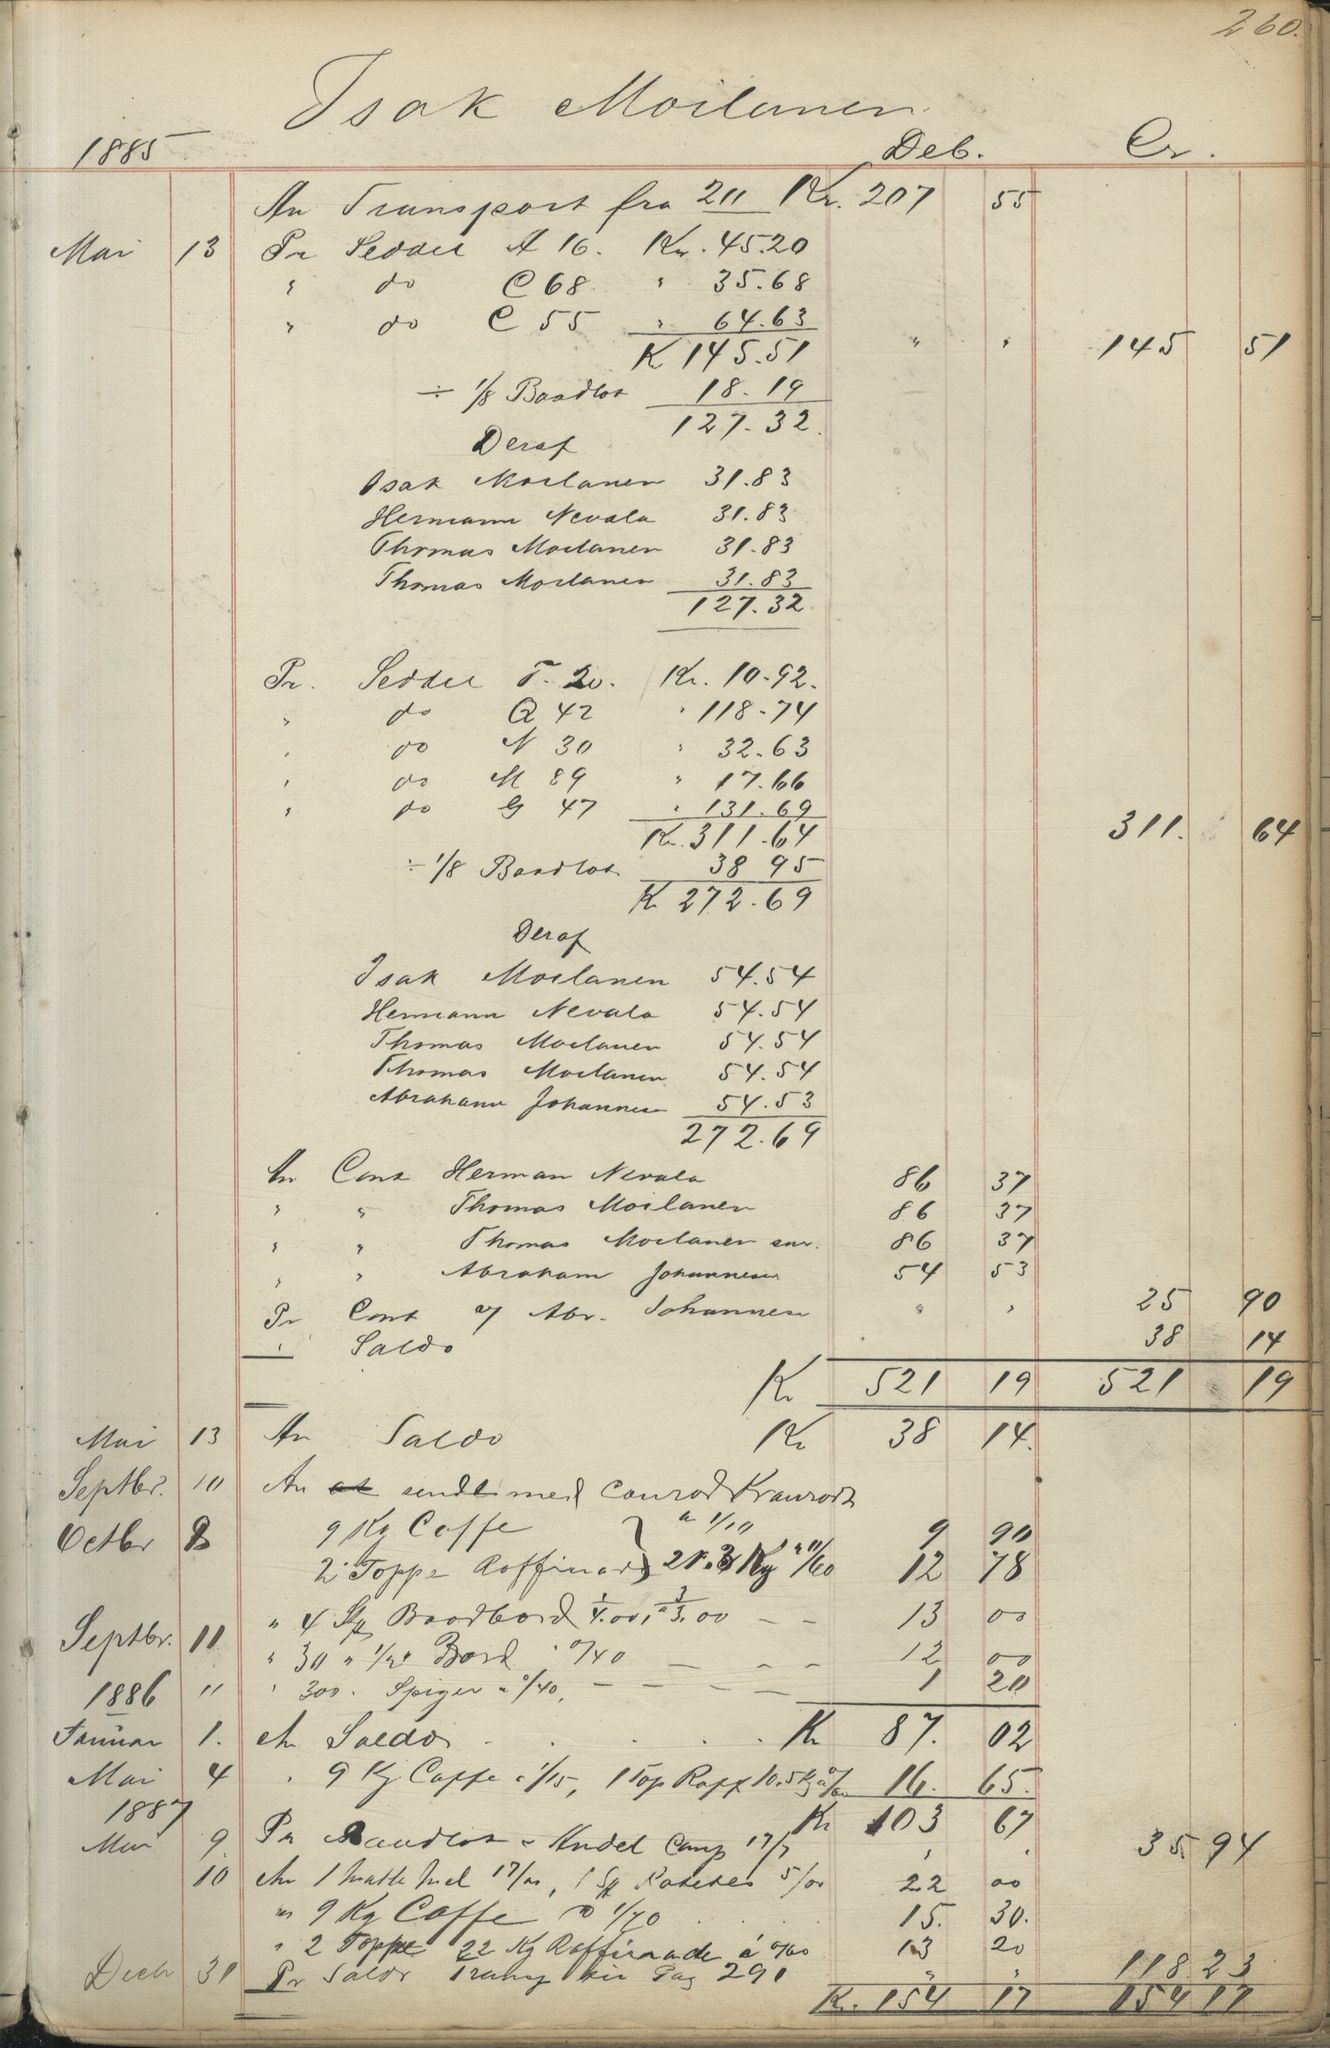 260.
Isak Moilanen
1885 Deb. Cr.
An Transport fra 211 Kr. 207 55
Mai 13 Pr Seddel A 16. Kr. 45.20
" do C 68 " 35.68
" do C 55 " 64.63
K 145.51 " " 145 51
÷ 1/8 Baadlot 18.19
127.32
Deraf
Isak Moilanen 31.83
Hermann Nevala 31.83
Thomas Moilanen 31.83
Thomas Moilanen 31.83
127.32
Pr. Seddel F. 20. Kr. 10.92.
" do Q 42 " 118.74
" do N 30 " 32.63
" do M 89 " 17.66
" do G 47 " 131.69
Kr. 311.64 311. 64
÷ 1/8 Baadlot 38 95
K 272.69
Deraf
Isak Moilanen 54.54
Hermann Nevala 54.54
Thomas Moilanen 54.54
Thomas Moilanen 54.54
Abraham Johannesen 54.53
272.69
An Cont Herman Nevala 86 37
" " Thomas Moilanen 86 37
" " Thomas Moilanen snr. 86 37
" " Abraham Johannesen 54 53
Pr Cont Abr. Johannesen " " 25 90
" Saldo 38 14
Kr 521 19 521 19
Mai 13 An Saldo Kr 38 14.
Septbr. 10 An sendt med Conrad
Octbr 8 9 Kg Caffe a 1/10 9 90
2 Toppe Raffinad 21.3 Kg a 0/60 12 78
" 4 Baadbord 4.00, 3.00 - - 13 00
Septbr. 11 " 30 " Bord " 0/40 - - - 12 00
1886 " " 300 " Spiger a 0/40, - - - - 1 20
Januar 1. An Saldo . . . . . K 87. 02
Mai 4 " 9 Kg Caffe a 1/15, 1 Top Raff 10.5 Kg a 0/60 16. 65.
1887 Kr 103 67
Mai 9 Pr Baadlot Andel Comp 17/7 " " 35. 94
10 An 1 Matte Mel 17/00, 1 Poteter 5/00 22 00
" 9 Kg Caffe a 1/70 . . . . 15. 30.
" 2 Toppe 22 Kg Raffinade á 0/60 13 20
Decb 31 Pr Saldo Transp til Pag 291 " " 118 23
K. 154 17 154 17